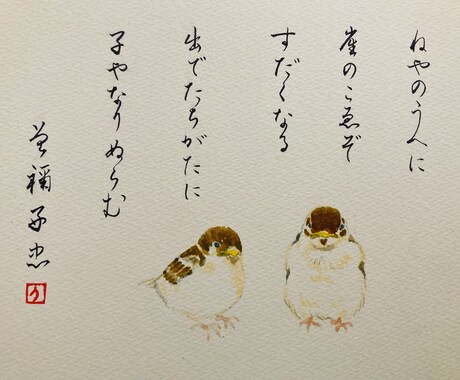 ねやのうへに
雀のこゑぞ
すだくなる
出でたちがたに
子やなりぬらむ
曽禰好忠